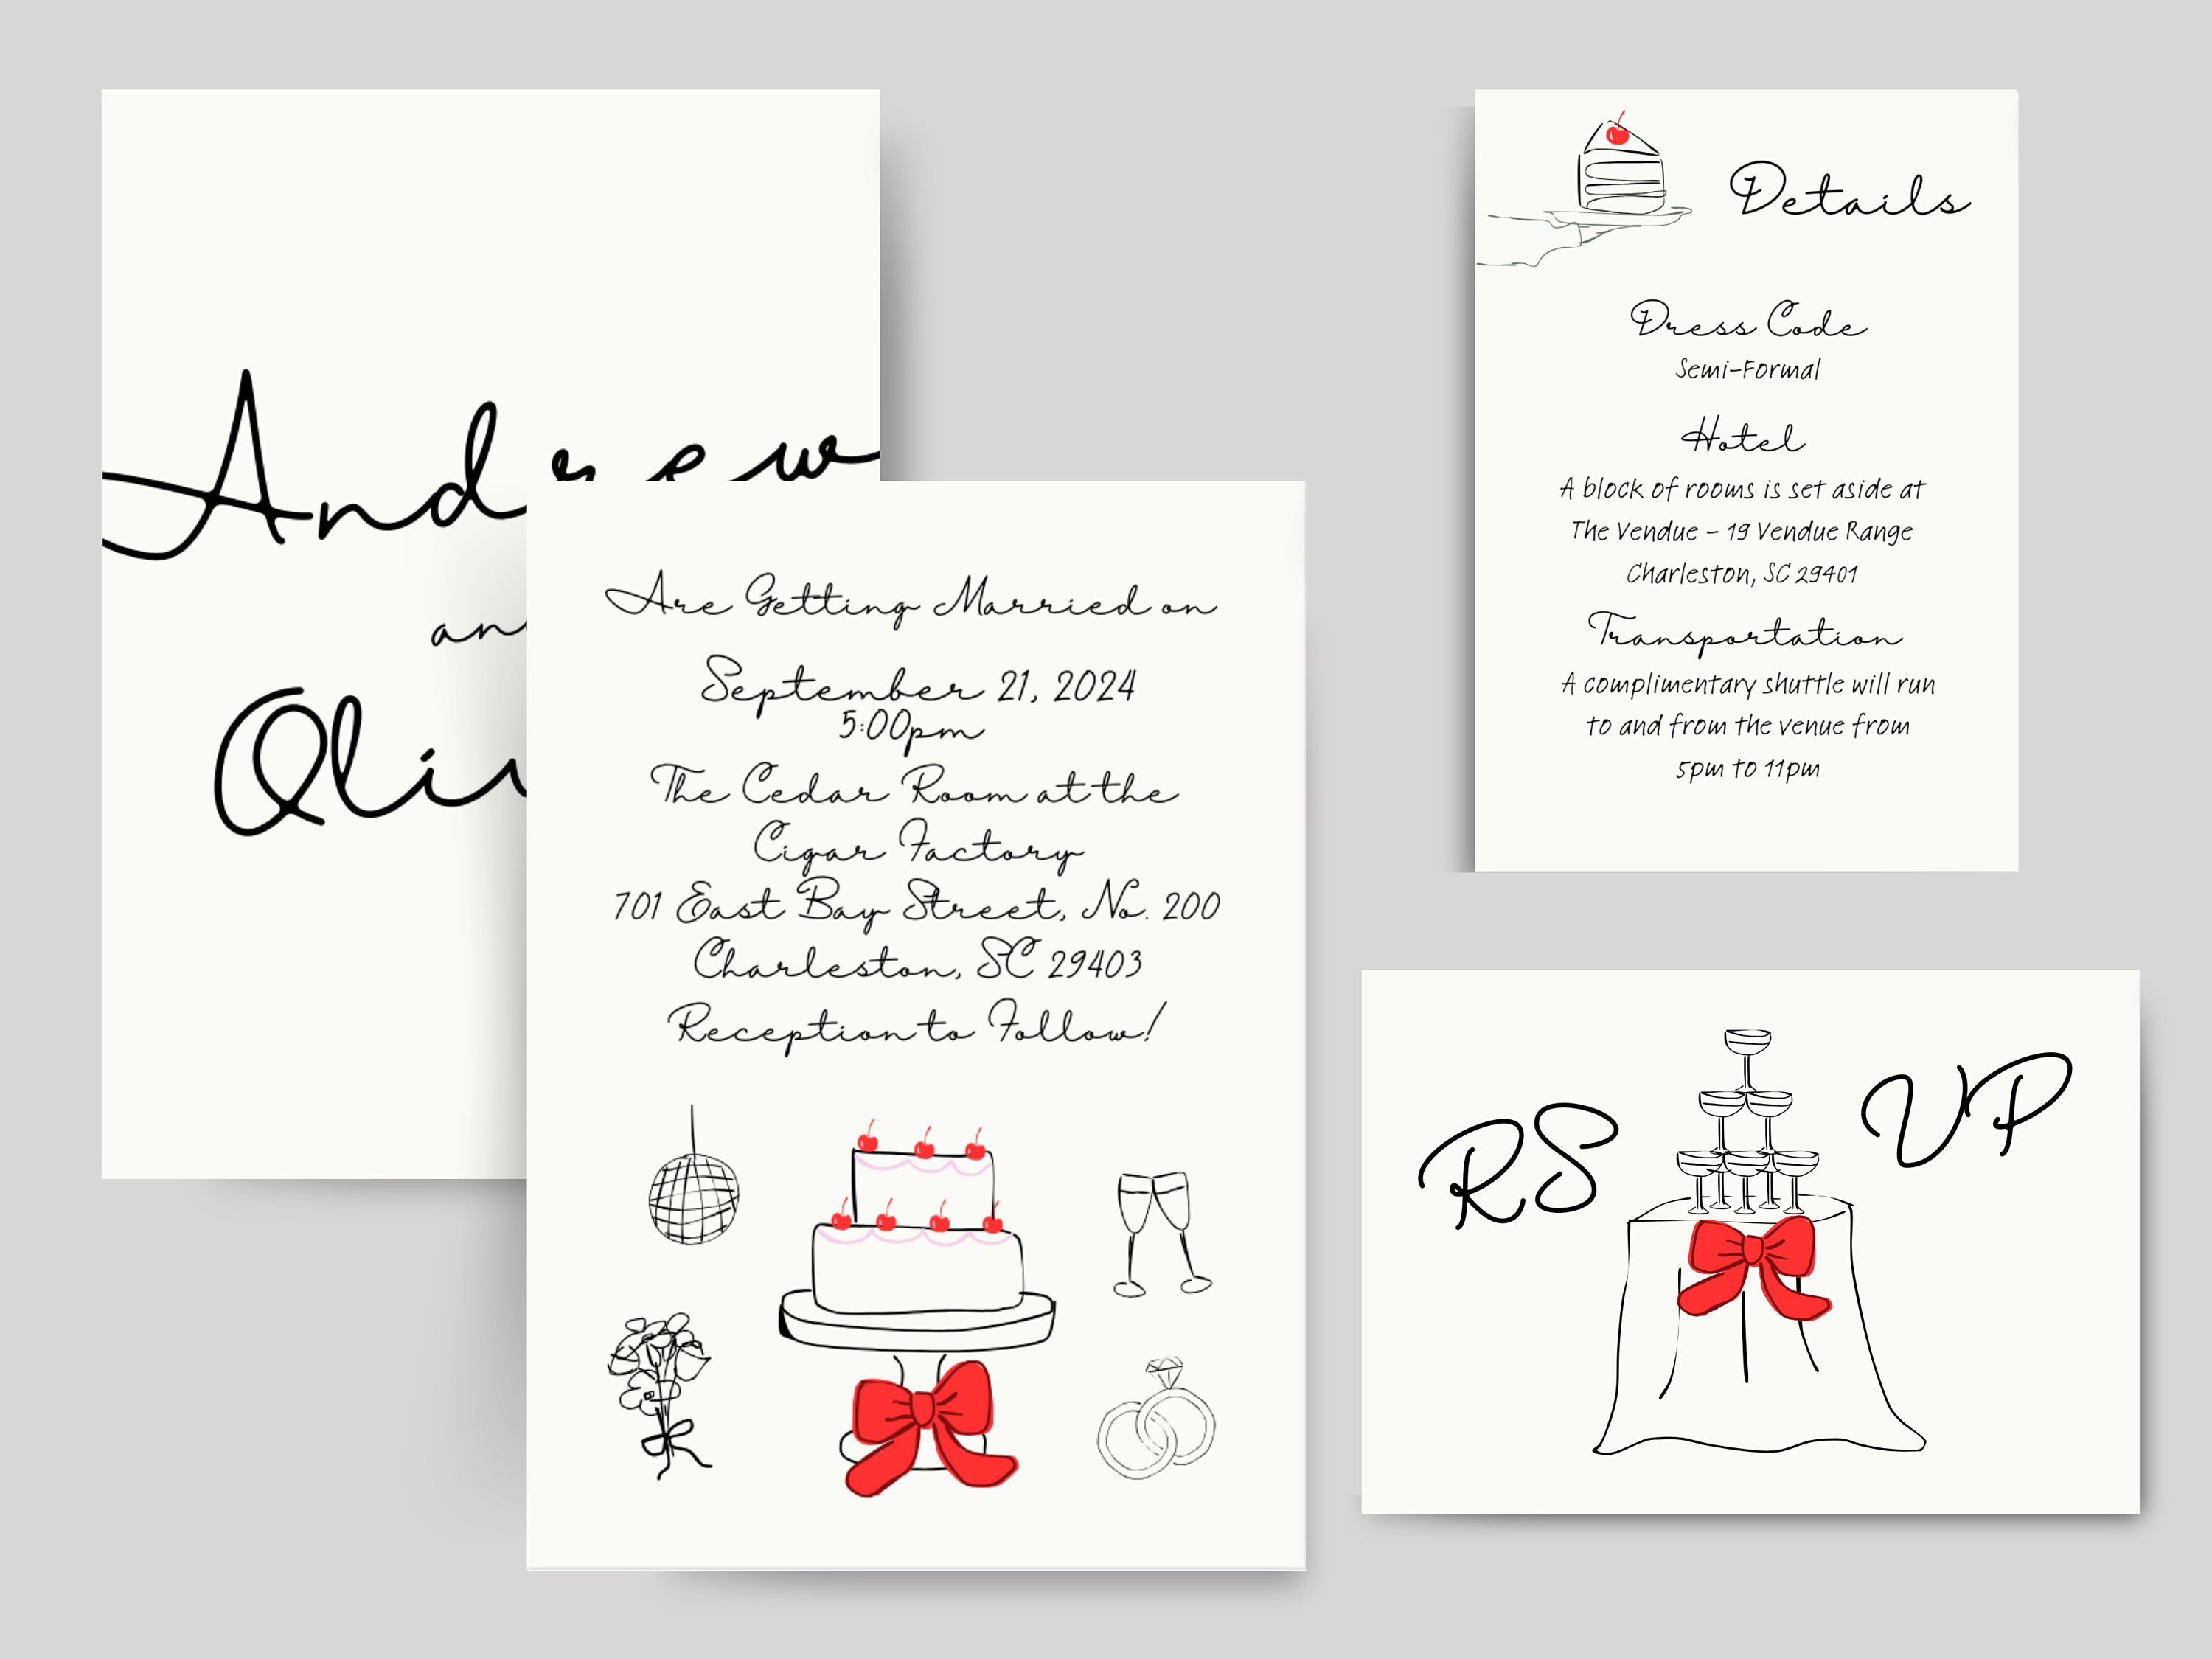 Andrew
Are Getting Married on
September 21, 2024
5:00pm
The Cedar Room at the
Cigar Factory
701 East Bay Street, No. 200
Charleston, SC 29403
Reception to Follow!
Details
Dress Code
Semi-Formal
Hotel
A block of rooms is set aside at
The Vendue - 19 Vendue Range
Charleston, SC 29401
Transportation
A complimentary shuttle will run
to and from the venue from
5pm to 11pm
RSVP